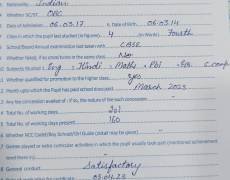 Nationality Indian
Whether SC/ST OBC
Date of Admission 05.03.17 Date of Birth 06.03.14
Class in which the pupil last studied (in figures) 4 (in Words) Fourth
School/Board Annual examination last taken with CBSE
Whether failed, if so once/twice in the same class No
Subjects Studied Eng Hindi Maths Pbi Evs. G. comp
Whether qualified for promotion to the higher class Yes
Month upto which the Pupil has paid school dues March 2023
Any fee concession availed of : if so, the nature of the such concession
Total No. of working days 201
Total No. of working days present 160
Whether NCC Cadet/Boy Scout/Girl Guide (detail may be given)
Games played or extra curricular activities in which the pupil usually took part (mentioned achievement
General conduct Satisfactory
03.04.23